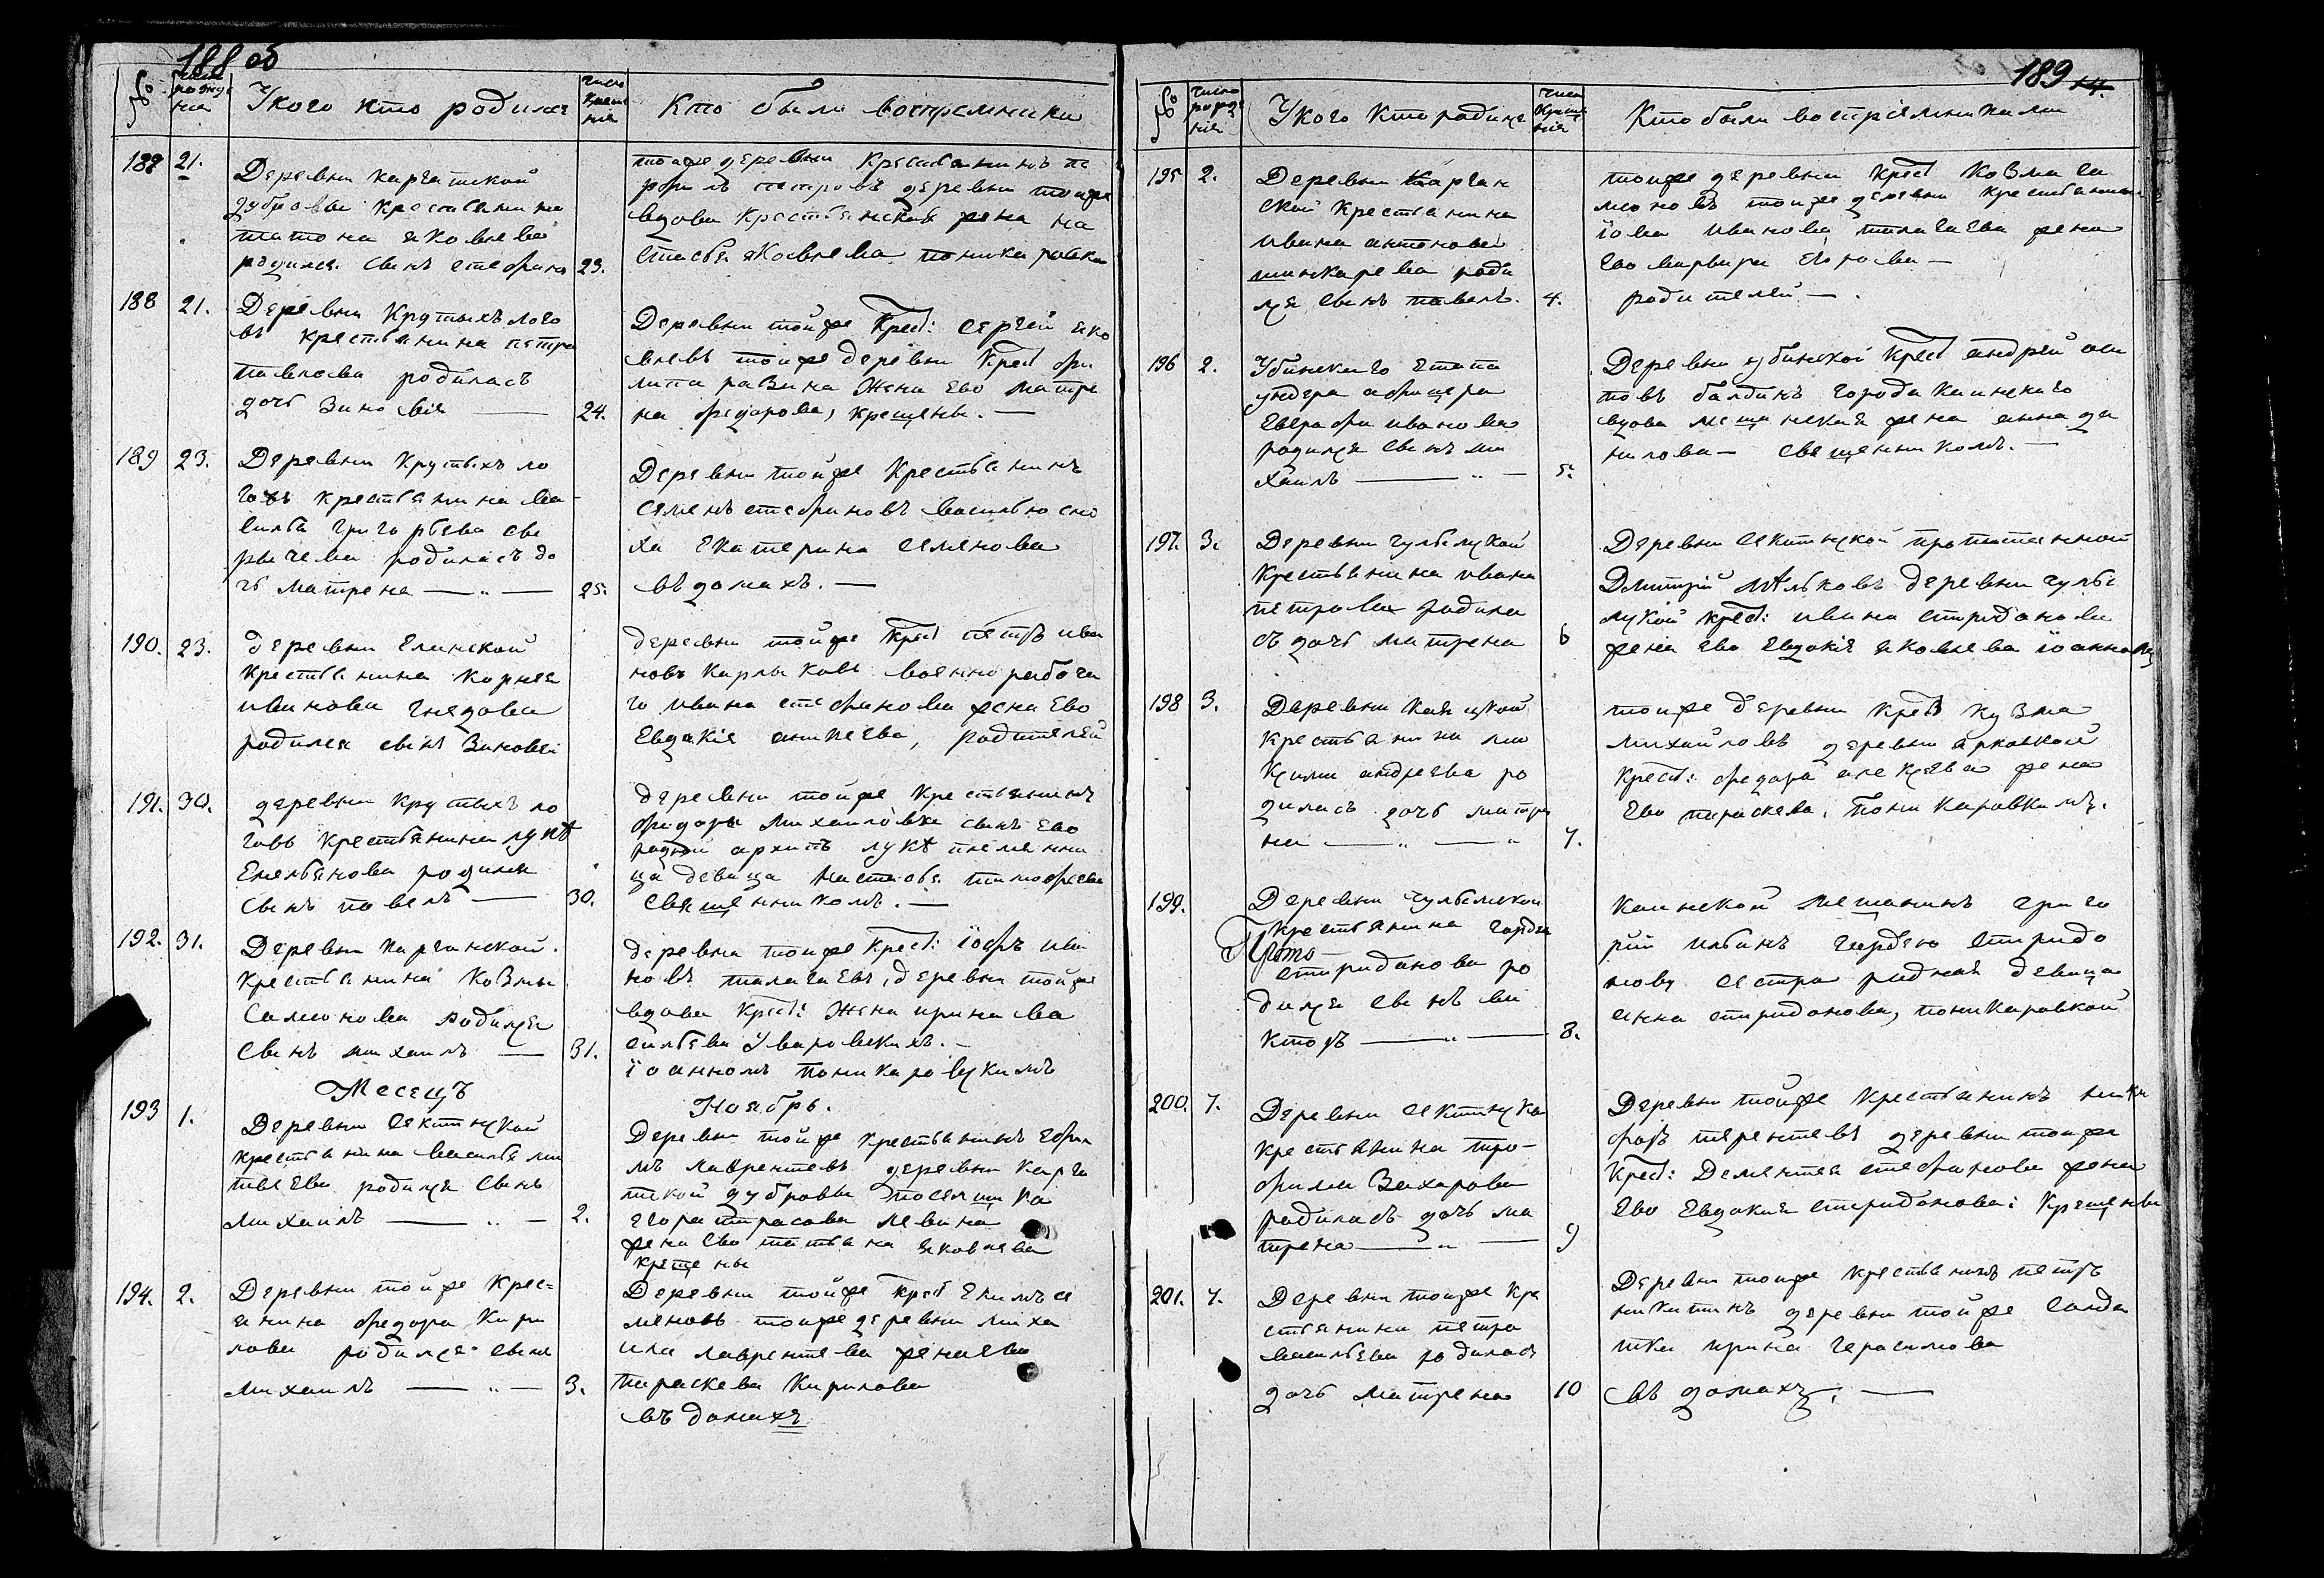 188 об
№
число рожде ния
У кого кто родился
число креще ния
Кто были восприемники
187 21.
Деревни Каргатской
дубровы крестьянина
платона яковлева
родился сынъ стефанъ 23.
тойже деревни крестьянинъ пе
рфилъ петровъ деревни тойже
вдова крестьянская жена на
стасья яковлева
188 21.
Деревни Крутыхъ лого
въ крестьянина петра
павлова родилась
дочь Зиновия — 24.
Деревни тойже Крест: сергей яко
влевъ тойже деревни Крест фи
липа разина Жена Ево матре
на федорова, крещены. —
189 23.
Деревни Крутыхъ ло
говъ крестьянина ва
силья григорьева сви
рычева родилась до
чь матрена — „ — 25.
Деревни тойже Крестьянинъ
семенъ стефановъ василью сно
ха Екатерина семенова
въ домахъ. —
190. 23.
деревни Елинской
крестьянина корнея
иванова гнедова
родился сынъ Зиновей
деревни тойже Крест петръ ива
новъ карлыковъ военно рабоча
го ивана стефанова жена Ево
Евдакiя аникеева, родителей
191. 30.
деревни крутыхъ ло
говъ крестьянина лукѣ
Емельянова родился
сынъ павелъ — 30.
деревни тойже крестьянинъ
федоръ михайловъ сынъ Ево
родной архипъ лукѣ племянни
ца девица настасья тимофеева
священникомъ. —
192. 31.
Деревни карганской.
крестьянина Козмы
Самонова родился
сынъ михаилъ — 31.
деревни тойже Крест: iофъ ива
новъ талагаевъ, деревни тойже
вдова Крест: Жена ирина ва
сильева Уваровскихъ. —
iоанномъ поникаровскимъ
Месецъ Ноябрь.
193 1.
Деревни секттуской
крестьянина василья ма
твеева родился сынъ
михаилъ — „ — 2.
Деревни тойже крестьянинъ Ефи
мъ лаврентевъ деревни карга
тской дубровы поселщика
Егора тарасова левина
жена Ево татьяна яковлева
крещены
194. 2.
Деревни тойже крес=
янина федора Кири
лова родился сынъ
михаилъ — „ — 3.
Деревни тойже Крест Екимъ се
меновъ тойже деревни миха
ила лаврентева жена ево
параскева Кирилова
въ домахъ
189 14.
№
число рожде нiя
У кого кто родился
число креще нiя
Кто были восприемниками
195 2.
Деревни Карган
ской крестьянина
ивана антонова
шинкарева роди
лся сынъ павелъ. 4.
тойже деревни Крест Козма са
моновъ тойже деревни крестьянина
iова иванова талагаева жена
Ево варвара —
родителей —.
196 2.
Убинскаго етапа
ундера афицера
Евграфа иванова
родился сынъ ми
хаилъ — „ — 5.
Деревни убинской Крест андрей оси
повъ балдинъ города Каинскаго
вдова мещанская жена анна да
нилова — священникомъ. —
197. 3.
Деревни гулбыцкой
Крестьянина ивана
петрова родила
сь дочь матрена 6
Деревни секттуской
Дмитрий мѣльковъ деревни гулбы
цкой крест: ивана спиридонова
жена Ево Евдокiя яковлева iоанномъ
198 3.
Деревни каяцкой
Крестьянина ма
ксима андреева ро
дилась дочь матре
на — „ — „ 7.
тойже деревни Крест кузма
михайловъ деревни арковкой
Крест: федора алексеева жена
Ево параскева, поникаровкимъ.
199.
Деревни гулбыцкой
крестьянина гордея
спиридонова ро
дился сынъ ви
кторъ — „ — 8.
каинской мещанинъ григо
рий ильинъ гордею спиридо
нову сестра родная девица
анна спиридонова, поникаровкой
200. 7.
Деревни секттуска
крестьянина тро-
фима Захарова
родилась дочь ма
трена — „ — 9
Деревни тойже крестьянинъ ники
форъ терентевъ деревни тойже
Крест: Дементея стефанова жена
Ево Евдакия спиридонова: Крещены
201. 7.
Деревни тойже кре
стьянина петра
васильева родилась
дочь матрена 10
Деревни тойже крестьянинъ петръ
никитинъ деревни тойже солда
тка ирина герасимова
въ домахъ. —